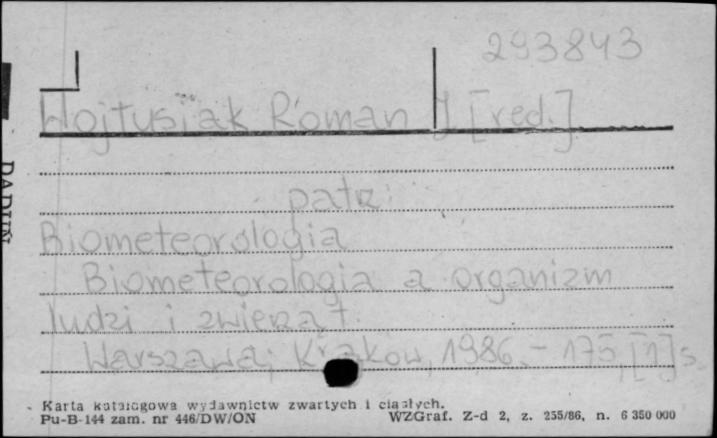 293843
Wojtusiak Roman J. [red.]
patrz:
Biometeorologia
Biometeorologia a organizm
ludzi i zwierząt.
Warszawa; Kraków, 1986. - 175, [1] s.
Karta katalogowa wydawnictw zwartych i ciągłych.
Pu-B-144 zam. nr 446/DW/ON WZGraf. Z-d 2, z. 255/86, n. 6 350 000